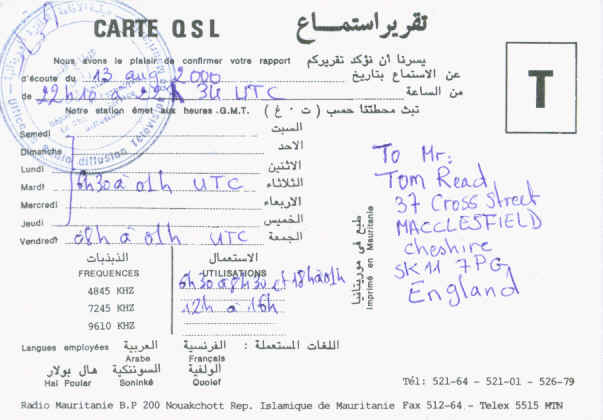 CARTE QSL تقرير استماع
Nous avons le plaisir de confirmer votre rapport يسرنا أن نؤكد تقريركم
d'écoute du 13 aug 2000 عن الاستماع بتاريخ
de 22h10 a 22h 34 UTC من الساعة
Notre station émet aux heures G.M.T. تبث محطتنا حسب (ت.غ)
Samedi السبت
Dimanche الاحد
Lundi الاثنين
Mardi 6h30 à 01h UTC الثلاثاء
Mercredi الاربعاء
Jeudi الخميس
Vendredi 08h à 01h UTC الجمعة
الذبذبات
FREQUENCES
4845 KHZ
7245 KHZ
9610 KHZ
الاستعمال
UTILISATIONS
6h30 à 8h30 et 18h à 01h
12h à 16h
Langues employées العربية الفرنسية اللغات المستعملة :
Arabe Français
هال بولار السوننكية الولفية
Hal Poular Soninké Ouolef
T
To Mr:
Tom Read
37 Cross Street
MACCLESFIELD
Cheshire
SK11 7PG
England
طبع في موريتانيا
Imprimé en Mauritanie
Tél: 521-64 - 521-01 - 526-79
Radio Mauritanie B.P 200 Nouakchott Rep. Islamique de Mauritanie Fax 512-64 - Telex 5515 MTN